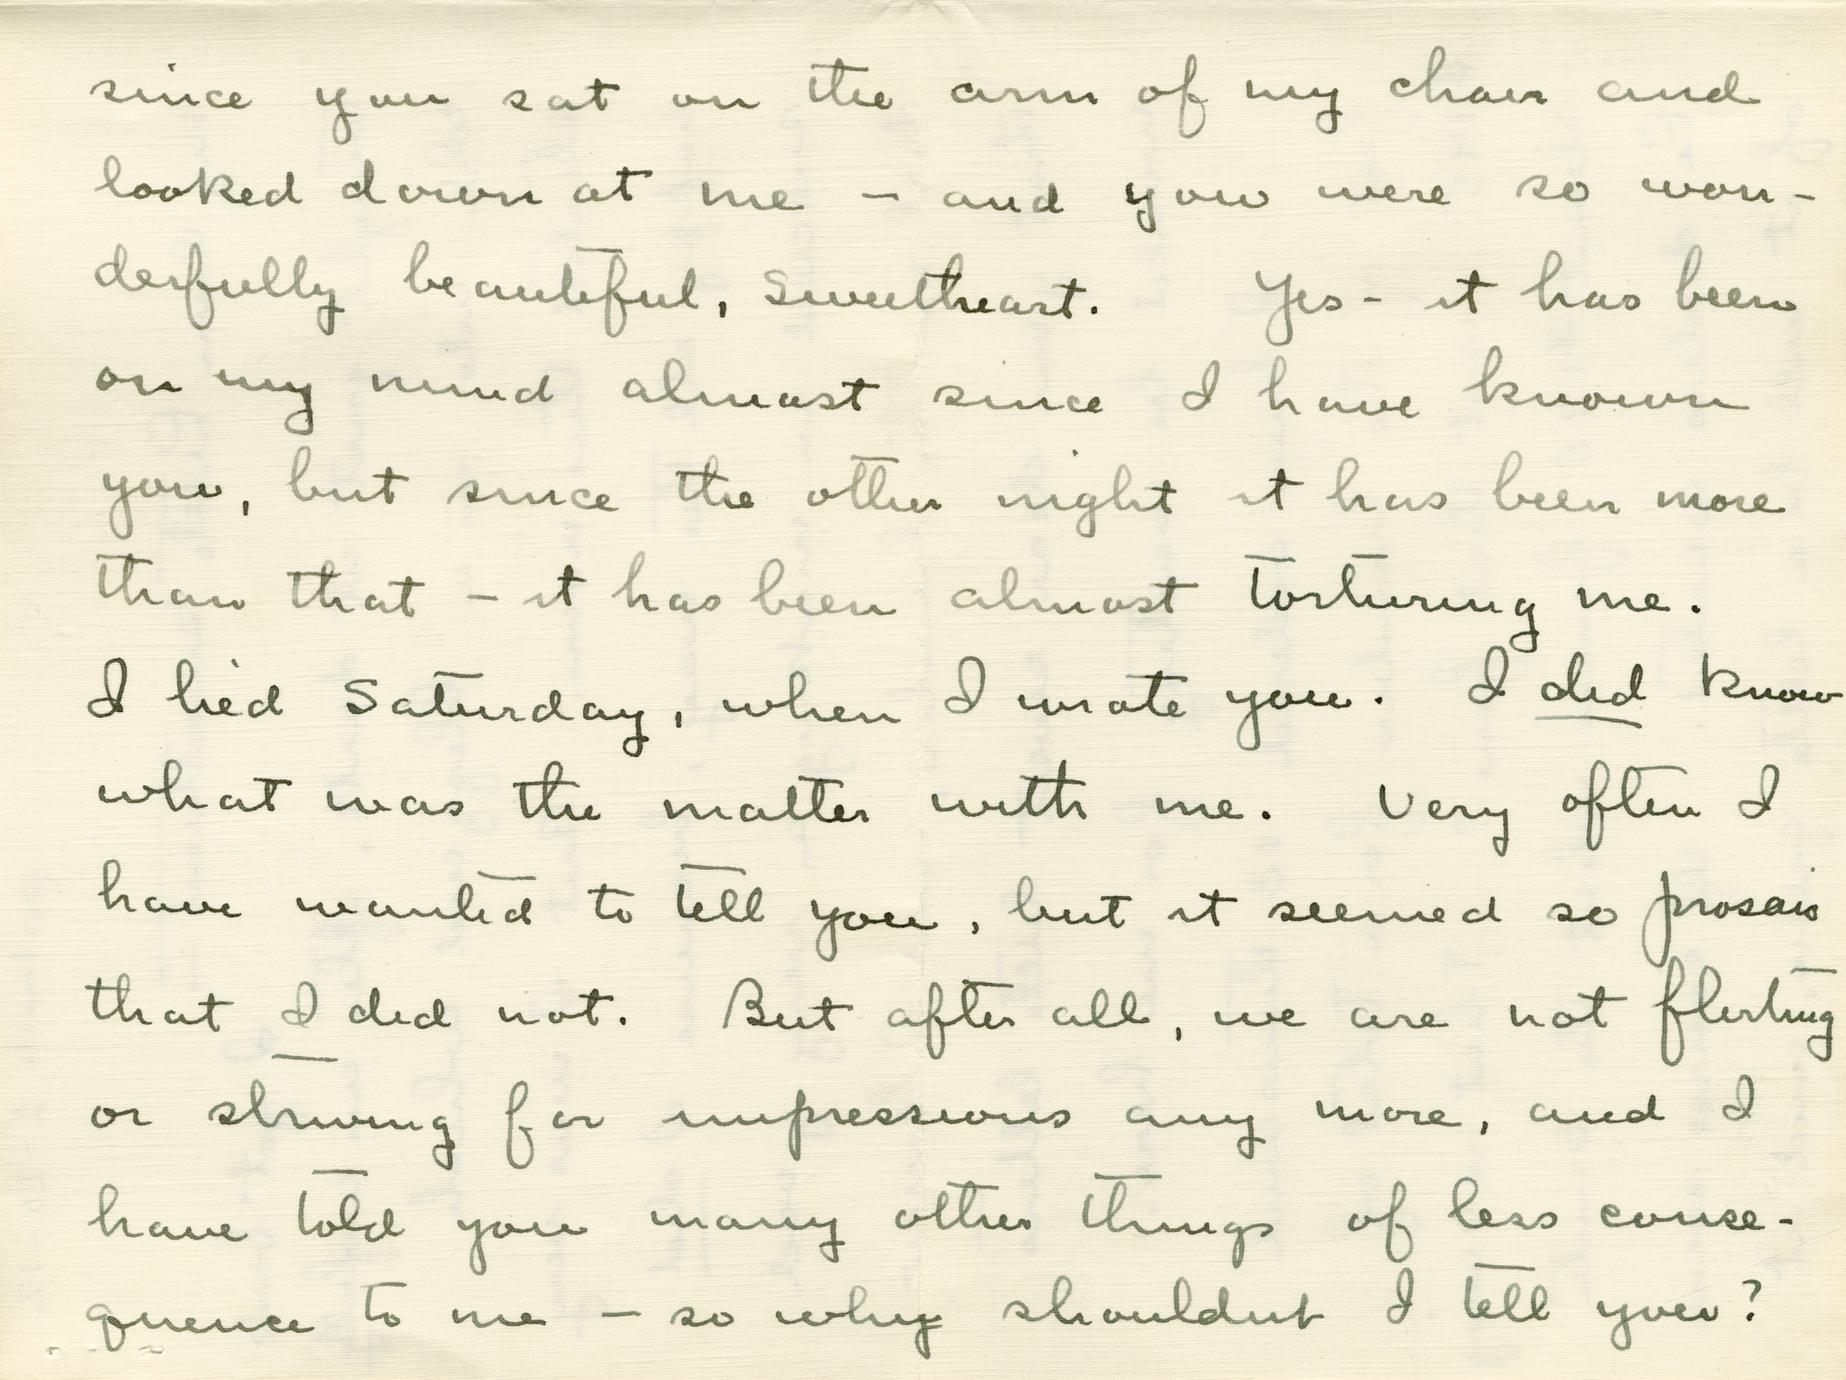 since you sat on the arm of my chair and
looked down at me – and you were so won-
derfully beautiful, Sweetheart. Yes – it has been
on my mind almost since I have known
you, but since the other night it has been more
than that – it has been almost torturing me.
I lied Saturday, when I wrote you. I did know
what was the matter with me. Very often I
have wanted to tell you, but it seemed so prosaic
that I did not. But after all, we are not flirting
or striving for impressions any more, and I
have told you many other things of less conse-
quence to me – so why shouldnt I tell you?